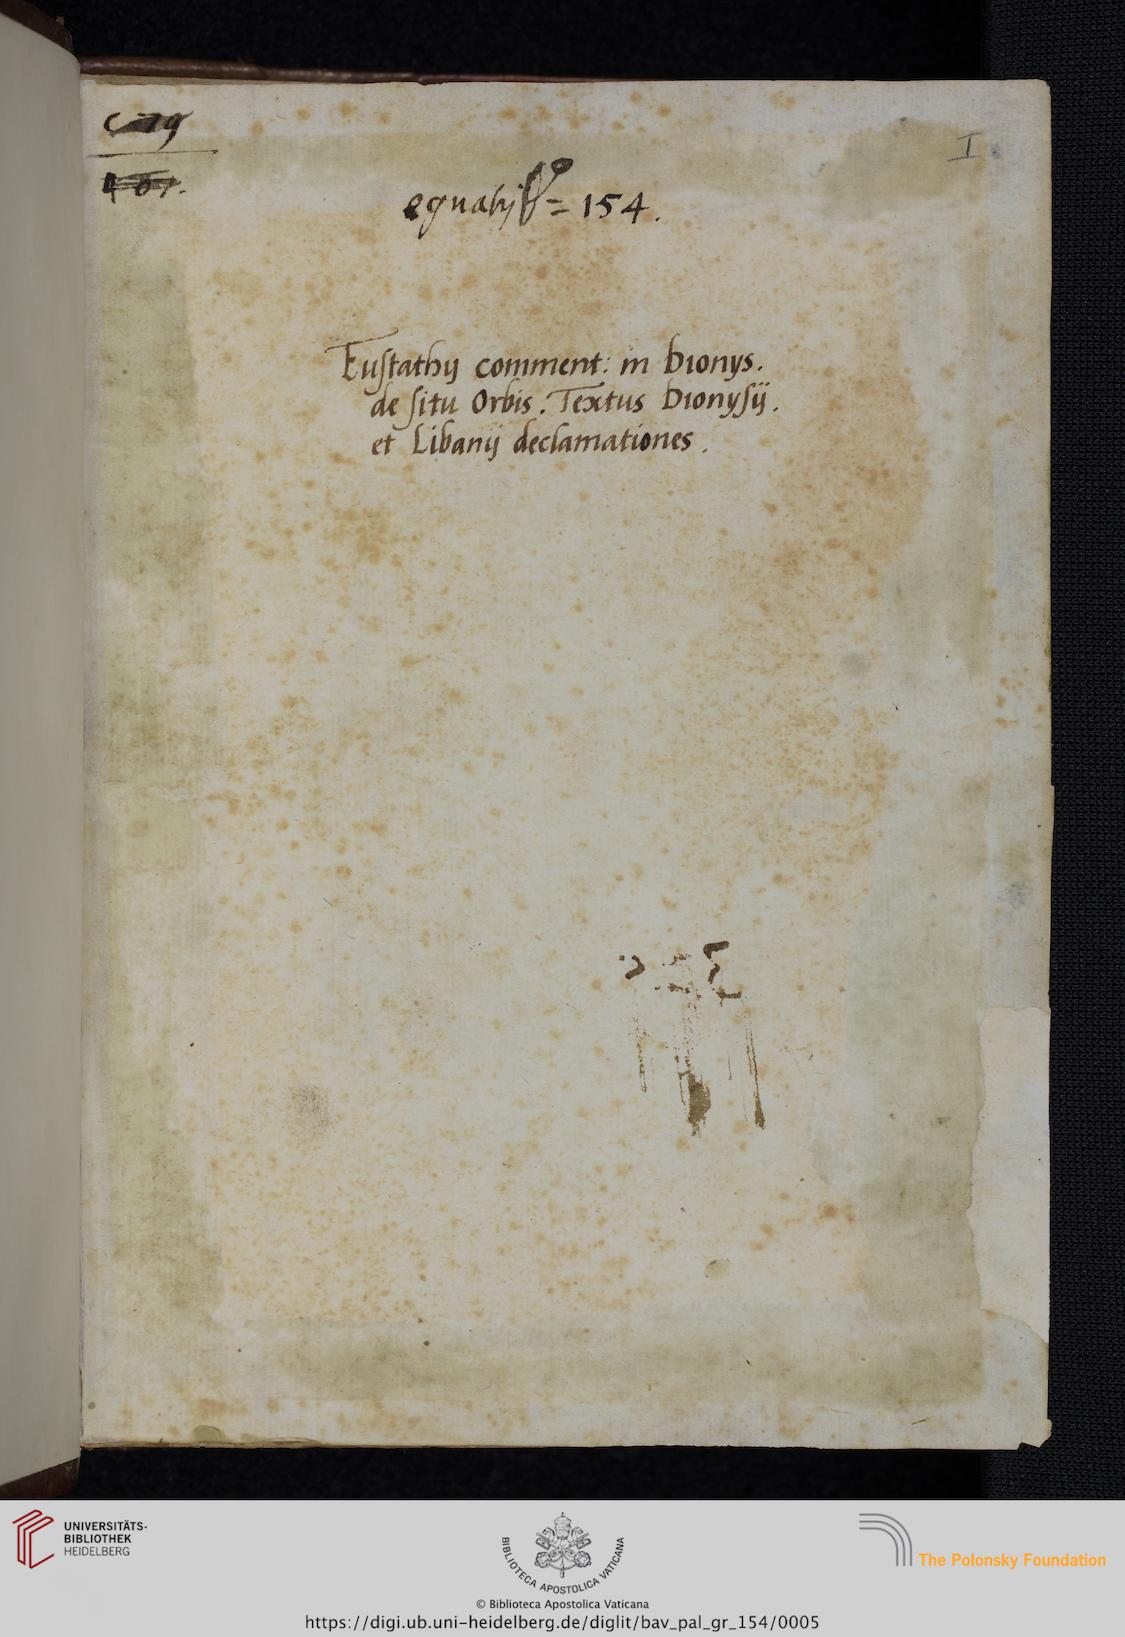 I
154.
Eustathij comment: in Dionys.
de situ Orbis. Textus Dionysij.
et Libanij declamationes.
UNIVERSITÄTS-
BIBLIOTHEK
HEIDELBERG
BIBLIOTECA APOSTOLICA VATICANA
The Polonsky Foundation
© Biblioteca Apostolica Vaticana
https://digi.ub.uni-heidelberg.de/diglit/bav_pal_gr_154/0005